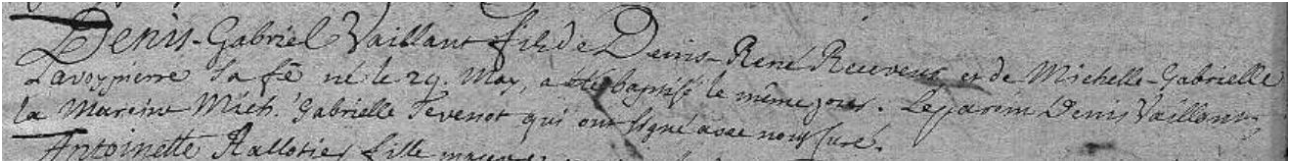 Denis-Gabriel Vaillant fils de Denis-René Receveur et de Michelle-Gabrielle
Lavoypierre Sa fẽ né le 29. May, a été baptisé le même jour. Le parin Denis Vaillant
la Mareine Mich. Gabrielle Tevenot qui ont signé avec nous Curé.
Antoinette fille